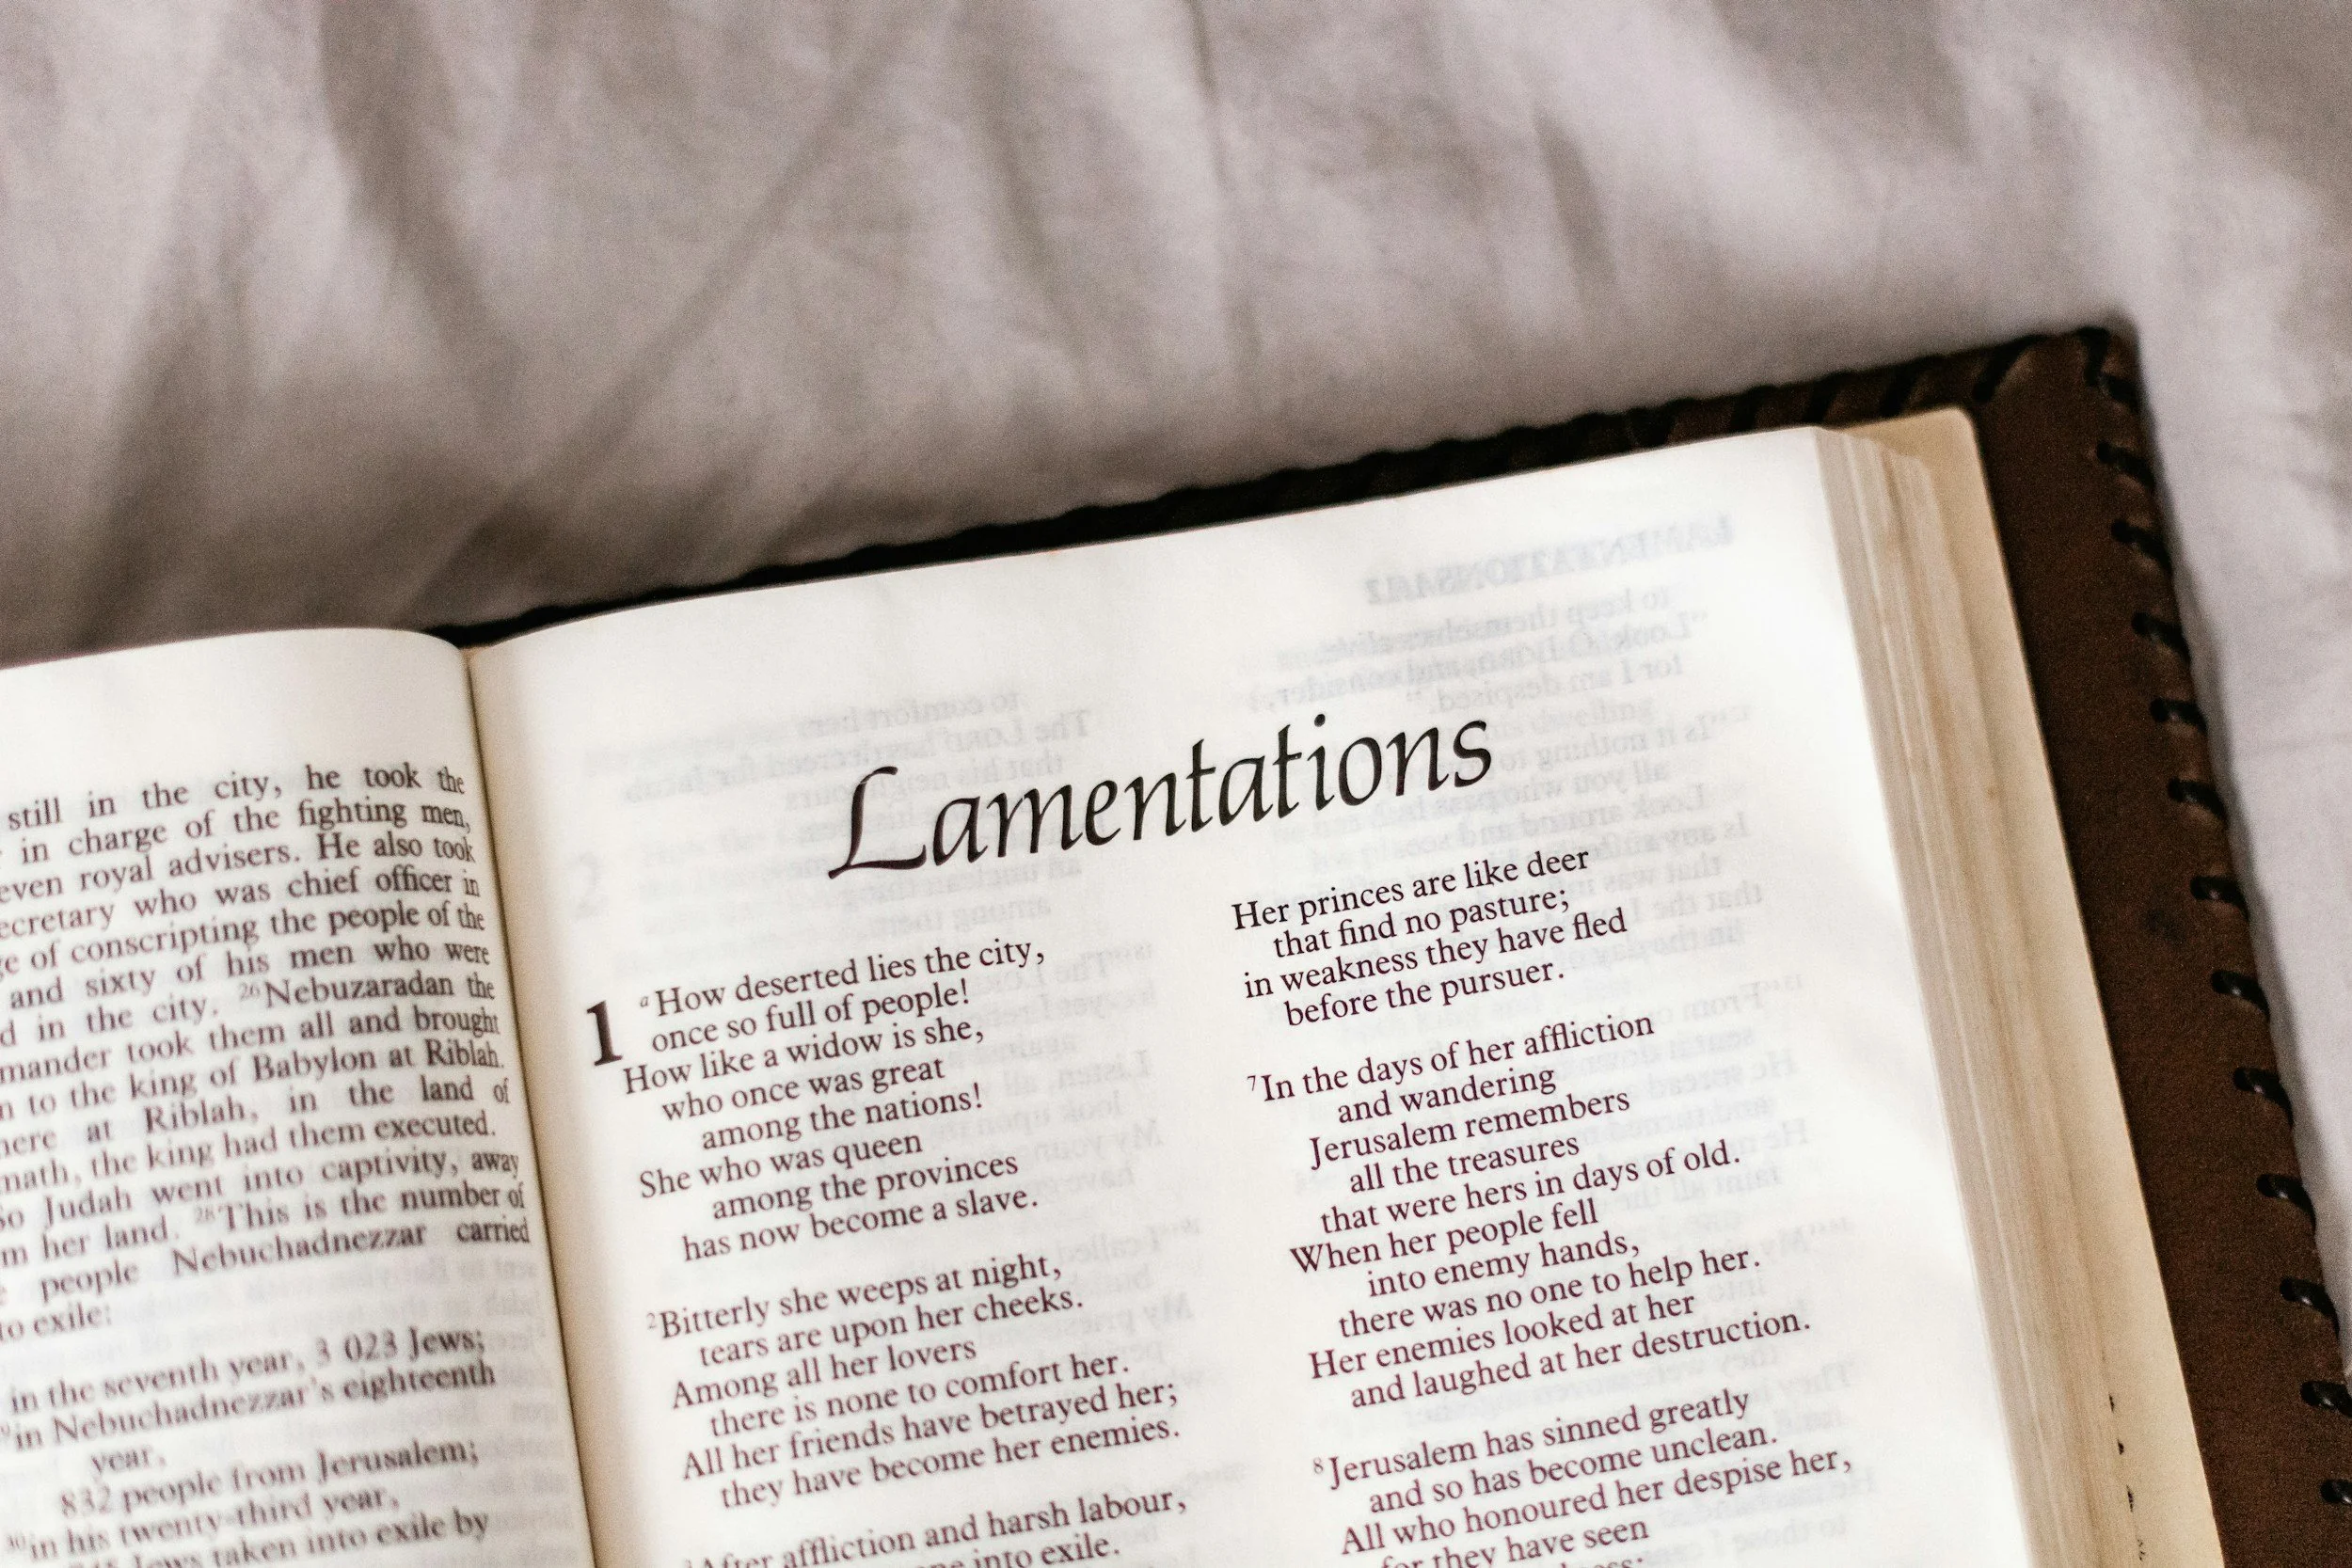 still in the city, he took the
in charge of the fighting men,
royal advisers. He also took
who was chief officer in
of conscripting the people of the
and sixty of his men who were
in the city. 26Nebuzaradan the
took them all and brought
to the king of Babylon at Riblah.
at Riblah, in the land of
the king had them executed.
Judah went into captivity, away
her land. 28This is the number of
people Nebuchadnezzar carried
exile:
in the seventh year, 3 023 Jews;
in Nebuchadnezzar's eighteenth
year,
832 people from Jerusalem;
30in his twenty-third year,
Jews taken into exile by
Lamentations
1 aHow deserted lies the city,
once so full of people!
How like a widow is she,
who once was great
among the nations!
She who was queen
among the provinces
has now become a slave.
2Bitterly she weeps at night,
tears are upon her cheeks.
Among all her lovers
there is none to comfort her.
All her friends have betrayed her;
they have become her enemies.
After affliction and harsh labour,
into exile.
Her princes are like deer
that find no pasture;
in weakness they have fled
before the pursuer.
7In the days of her affliction
and wandering
Jerusalem remembers
all the treasures
that were hers in days of old.
When her people fell
into enemy hands,
there was no one to help her.
Her enemies looked at her
and laughed at her destruction.
8Jerusalem has sinned greatly
and so has become unclean.
All who honoured her despise her,
for they have seen